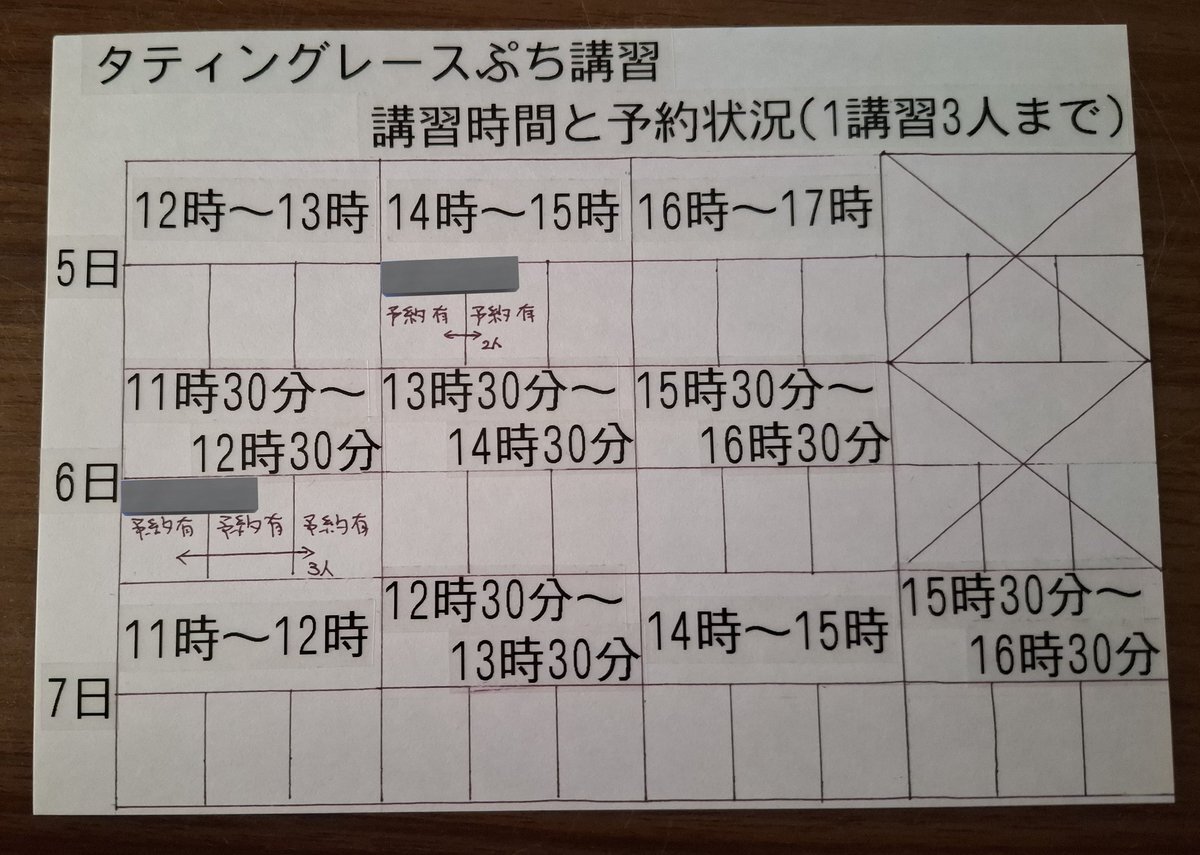 タティングレースぷち講習
講習時間と予約状況(1講習3人まで)
12時～13時 14時～15時 16時～17時
5日
予約有 予約有
2人
11時30分～ 13時30分～ 15時30分～
12時30分 14時30分 16時30分
6日
予約有 予約有 予約有
3人
11時～12時 12時30分～ 14時～15時 15時30分～
13時30分 16時30分
7日